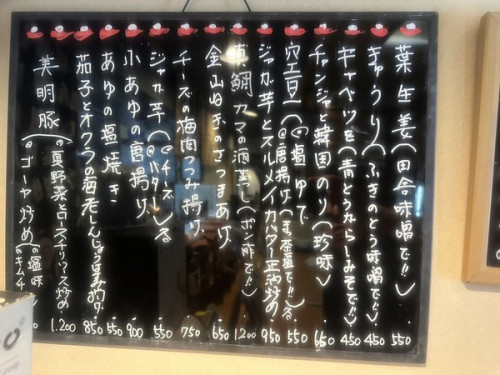 葉生姜(田舎味噌で!!) 550
きゅうり(ふきのとう味噌で!!) 450
キャベツを(青とうがらしみそで!!) 450
チャンジャと韓国のり(珍味) 650
空豆(@塩ゆで @唐揚げ(ま、茶塩で!!)) 550
ジャガ芋とスルメイカバター正油炒め 950
真鯛カマの酒蒸し(ポン酢で!!) 1200
金山ねぎのさつまあげ 650
チーズの海肉つつみ揚げ 750
ジャガ芋(@チーズ @バター) 550
小あゆの唐揚げ 900
あゆの塩焼き 550
茄子とオクラの海老しんじょうはさみ揚げ 850
美明豚(@夏野菜と チリソース炒め @ゴーヤ炒め(@塩味 @キムチ 1.200